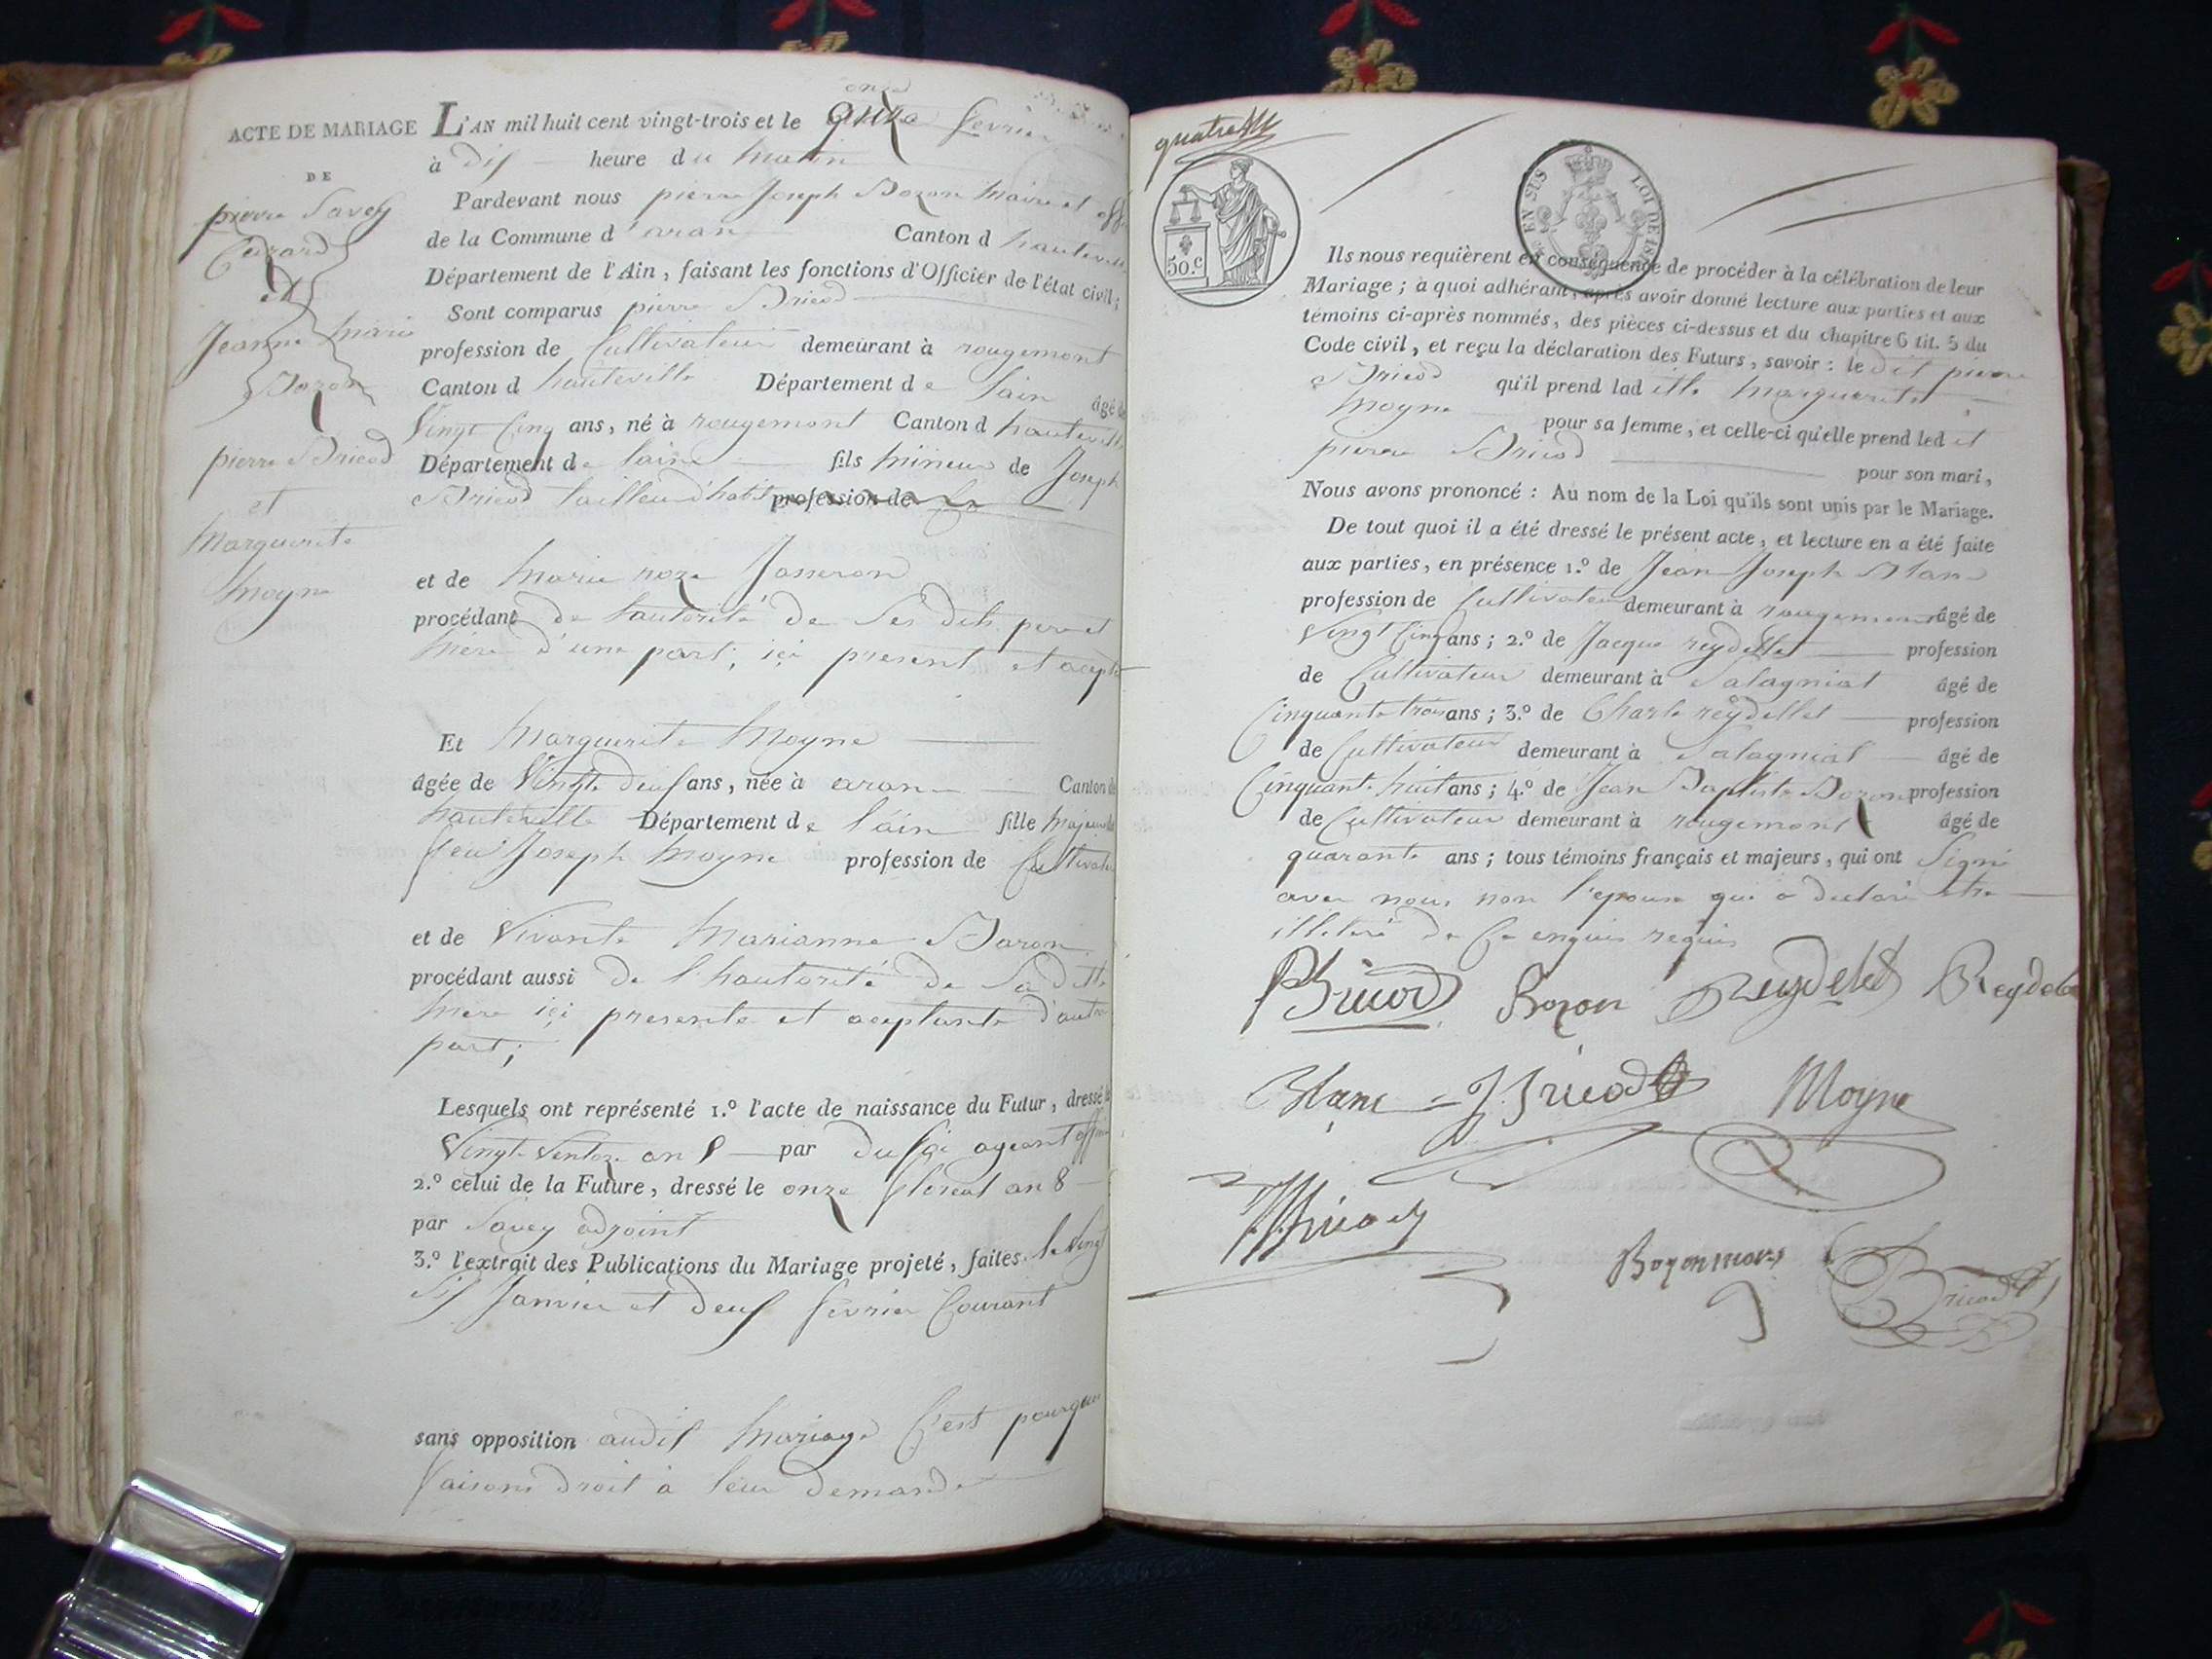 ACTE DE MARIAGE
DE
pierre Savey
Curard
et
Jeanne Marie
Bozon
pierre Bricod
et
Marguerite
Moyne
onze
L'AN mil huit cent vingt-trois et le onze fevrier
à dix heure du matin
Pardevant nous pierre Joseph Bozon Maire et off
de la Commune d'aran Canton d hauteville
Département de l'Ain, faisant les fonctions d'Officier de l'état civil;
Sont comparus pierre Bricod
profession de Cultivateur demeurant à rougemont
Canton d hauteville Département de lain âgé de
Vingt Cinq ans, né à rougemont Canton d hauteville
Département de lain fils mineur de Joseph
Bricod tailleur d'habit profession de
et de Marie roze Jasseron
procédant de lautorité de Ses dits pere et
mere d'une part, içi present et acepte
Et Marguerite Moyne
âgée de Vingt deux ans, née à aran Canton de
hauteville Département de l'ain fille majeure de
feu Joseph Moyne profession de Cultivate
et de Vivante Marianne Bozon
procédant aussi de l'hautorité de Sa ditte
mere içi presente et aceptante d'autre
part;
Lesquels ont représenté 1.º l'acte de naissance du Futur, dressé le
Vingt Ventoze an 8 par ageant
2.º celui de la Future, dressé le onze floreal an 8
par Savey adjoint
3.º l'extrait des Publications du Mariage projeté, faites le Vingt
Six Janvier et deux fevrier Courant
sans opposition audit Mariage C'est pourquoi
faisons droit à leur demande
quatre
50.c
EN SUS LOI DE 18
Ils nous requièrent en conséquence de procéder à la célébration de leur
Mariage; à quoi adhérant, après avoir donné lecture aux parties et aux
témoins ci-après nommés, des pièces ci-dessus et du chapitre 6 tit. 5 du
Code civil, et reçu la déclaration des Futurs, savoir: le dit pierre
Bricod qu'il prend lad itte Marguerite
Moyne pour sa femme, et celle-ci qu'elle prend led it
pierre Bricod pour son mari,
Nous avons prononcé: Au nom de la Loi qu'ils sont unis par le Mariage.
De tout quoi il a été dressé le présent acte, et lecture en a été faite
aux parties, en présence 1.º de Jean Joseph Blanc
profession de Cultivateur demeurant à rougemont âgé de
Vingt Cinq ans; 2.º de Jacque reydellet profession
de Cultivateur demeurant à Salagniat âgé de
Cinquante trois ans; 3.º de Charle reydellet profession
de Cultivateur demeurant à Salagniat âgé de
Cinquante huit ans; 4.º de Jean Baptiste Bozon profession
de Cultivateur demeurant à rougemont âgé de
quarante ans; tous témoins français et majeurs, qui ont Signé
avec nous non l'epouse qui a declaré etre
illetéré de Ce enquis requis
PBricod Bozon Reydelet Reydelet
Blanc J. Bricod Moyne
Bricod
Bozon maire Bricod